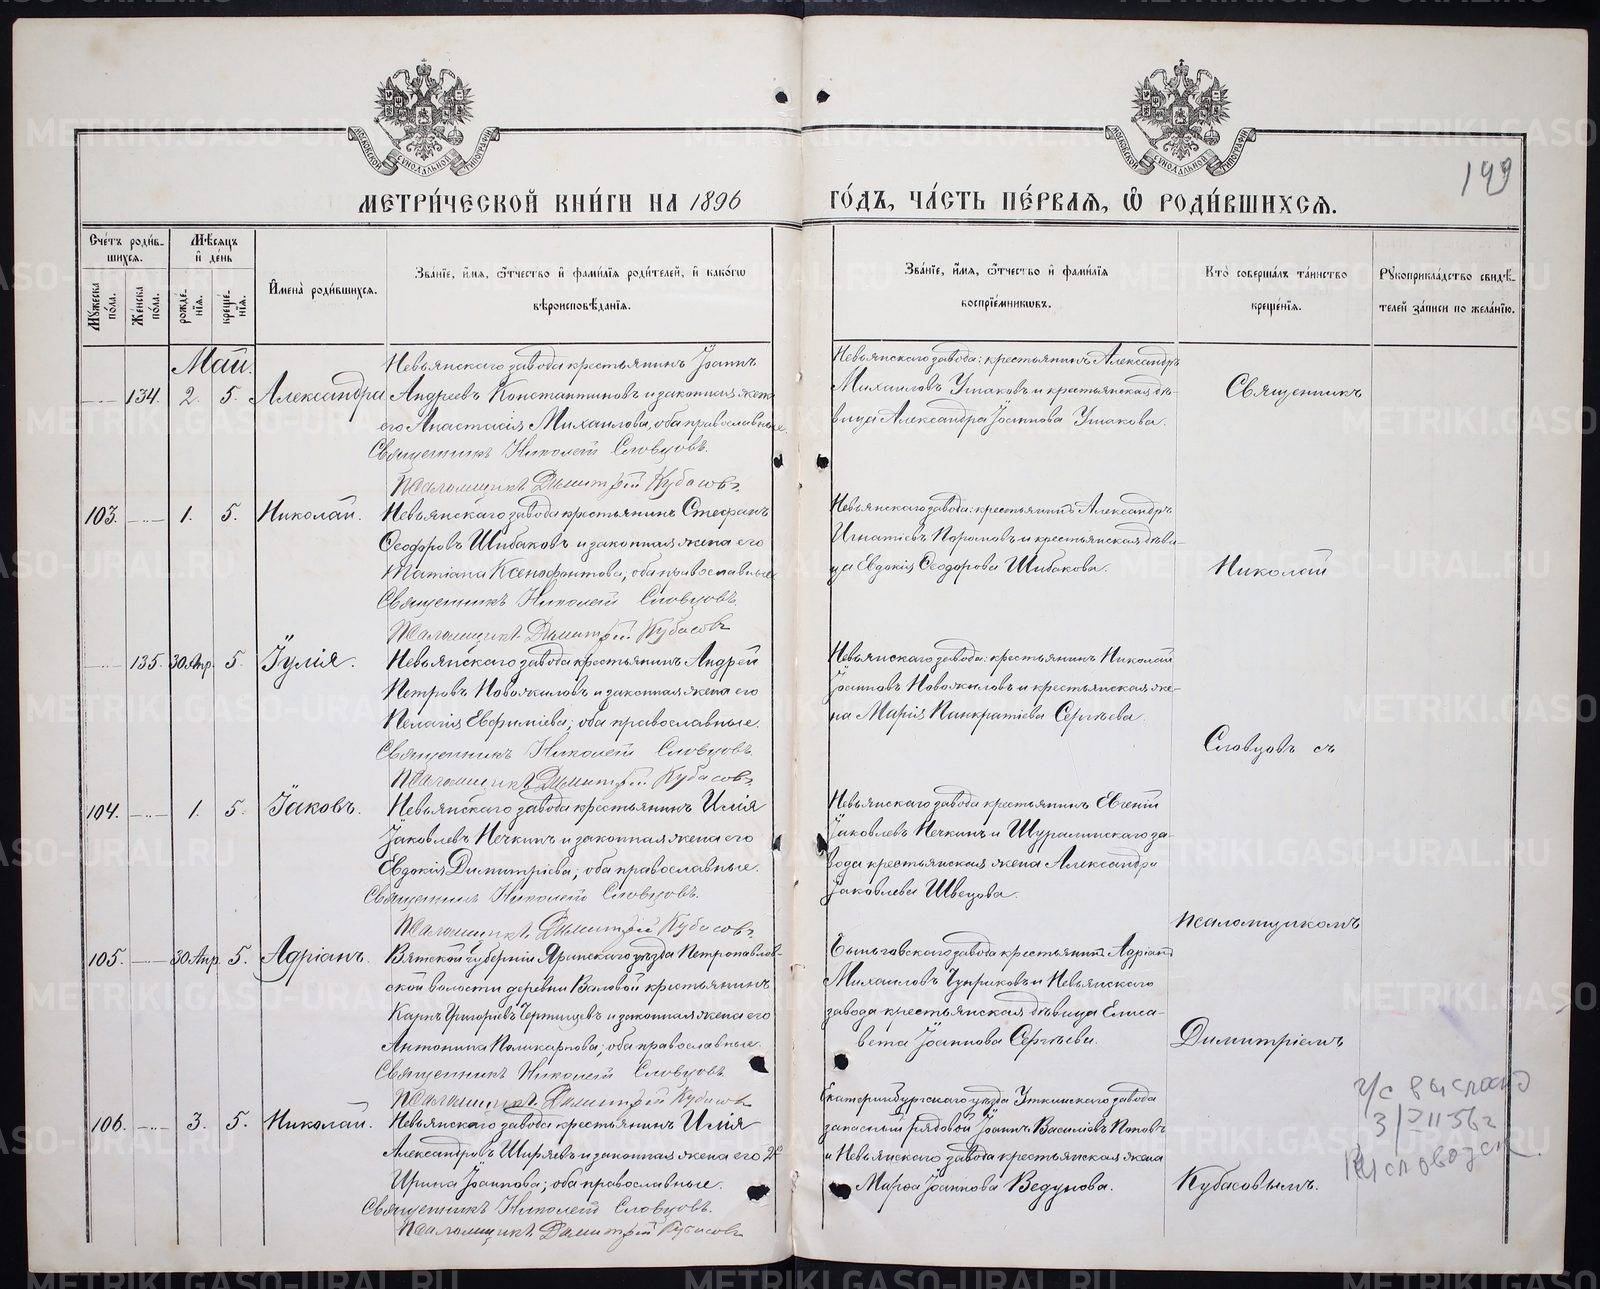 МЕТРИ́ЧЕСКОЙ КНИ́ГИ НА 1896 ГО́ДЪ, ЧА́СТЬ ПЕ́РВАЯ, Ѡ҆ РОДИ́ВШИХСЯ.
149
Счетъ роди́вшихся.
Мꙋжеска по́ла.
Женска по́ла.
Мѣсяцъ и҆ де́нь
рожде́нїя.
креще́нїя.
И҆мена̀ роди́вшихся.
Зва́нїе, и҆́мя, ѻ҆́тчество и҆ фами́лїя роди́телей, и҆ како́гѡ вѣроисповѣ́данїя.
Зва́нїе, и҆́мя, ѻ҆́тчество и҆ фами́лїя воспрїе́мникѡвъ.
Кто̀ соверша́лъ та́инство креще́нїя.
Рꙋкоприкла́дство свидѣ́телей за́писи по жела́нїю.
Май.
134. 2. 5. Александра
Невьянскаго завода крестьянинъ Іоаннъ
Андреевъ Константиновъ и законная жена
его Анастасія Михаилова, оба православные.
Священникъ Николай Словцовъ.
Псаломщикъ Димитрій Кубасовъ
Невьянскаго завода: крестьянинъ Александръ
Михаиловъ Ушаковъ и крестьянская дѣ-
вица Александра Іоаннова Ушакова.
Священникъ
103. 1. 5. Николай.
Невьянскаго завода крестьянинъ Стефанъ
Ѳеодоровъ Шибаковъ и законная жена его
Татіана Ксенофонтова, оба православные
Священникъ Николай Словцовъ.
Псаломщикъ Димитрій Кубасовъ
Невьянскаго завода: крестьянинъ Александръ
Игнатіевъ Порамовъ и крестьянская дѣви-
ца Евдокія Ѳеодорова Шибакова.
Николай
135. 30 Апр. 5. Іулія.
Невьянскаго завода крестьянинъ Андрей
Петровъ Новожиловъ и законная жена его
Пелагія Евфиміева; оба православные.
Священникъ Николай Словцовъ.
Псаломщикъ Димитрій Кубасовъ
Невьянскаго завода: крестьянинъ Николай
Іоанновъ Новожиловъ и крестьянская же-
на Марія Панкратіева Сергѣева.
Словцовъ съ
104. 1. 5. Іаковъ.
Невьянскаго завода крестьянинъ Илія
Іаковлевъ Нечкинъ и законная жена его
Евдокія Димитріева; оба православные.
Священникъ Николай Словцовъ.
Псаломщикъ Димитрій Кубасовъ
Невьянскаго завода крестьянинъ Евгеній
Іаковлевъ Нечкинъ и Шуралинскаго за-
вода крестьянская жена Александра
Іаковлева Швецова.
псаломщикомъ
105. 30 Апр. 5. Адріанъ.
Вятской губерніи Яранскаго уѣзда Петропавлов-
ской волости деревни Валовой крестьянинъ
Карпъ Григоріевъ Чертищевъ и законная жена его
Антонина Поликарпова; оба православные.
Священникъ Николай Словцовъ.
Псаломщикъ Димитрій Кубасовъ
Быньговскаго завода крестьянинъ Адріанъ
Михаиловъ и Невьянскаго
завода крестьянская дѣвица Елиса-
вета Іоаннова Сергѣева.
Димитріемъ
106. 3. 5. Николай.
Невьянскаго завода крестьянинъ Илія
Александровъ Ширяевъ и законная жена его 2ая
Ирина Іоаннова; оба православные.
Священникъ Николай Словцовъ.
Псаломщикъ Димитрій Кубасовъ
Екатеринбургскаго уѣзда Уткинскаго завода
запасный рядовой Іоаннъ Василіевъ Поповъ
и Невьянскаго завода крестьянская жена
Марѳа Іоаннова Ведунова.
Кубасовымъ.
г/с выслано
3/VII 56 г
Кисловодск.
METRIKI.GASO-URAL.RU